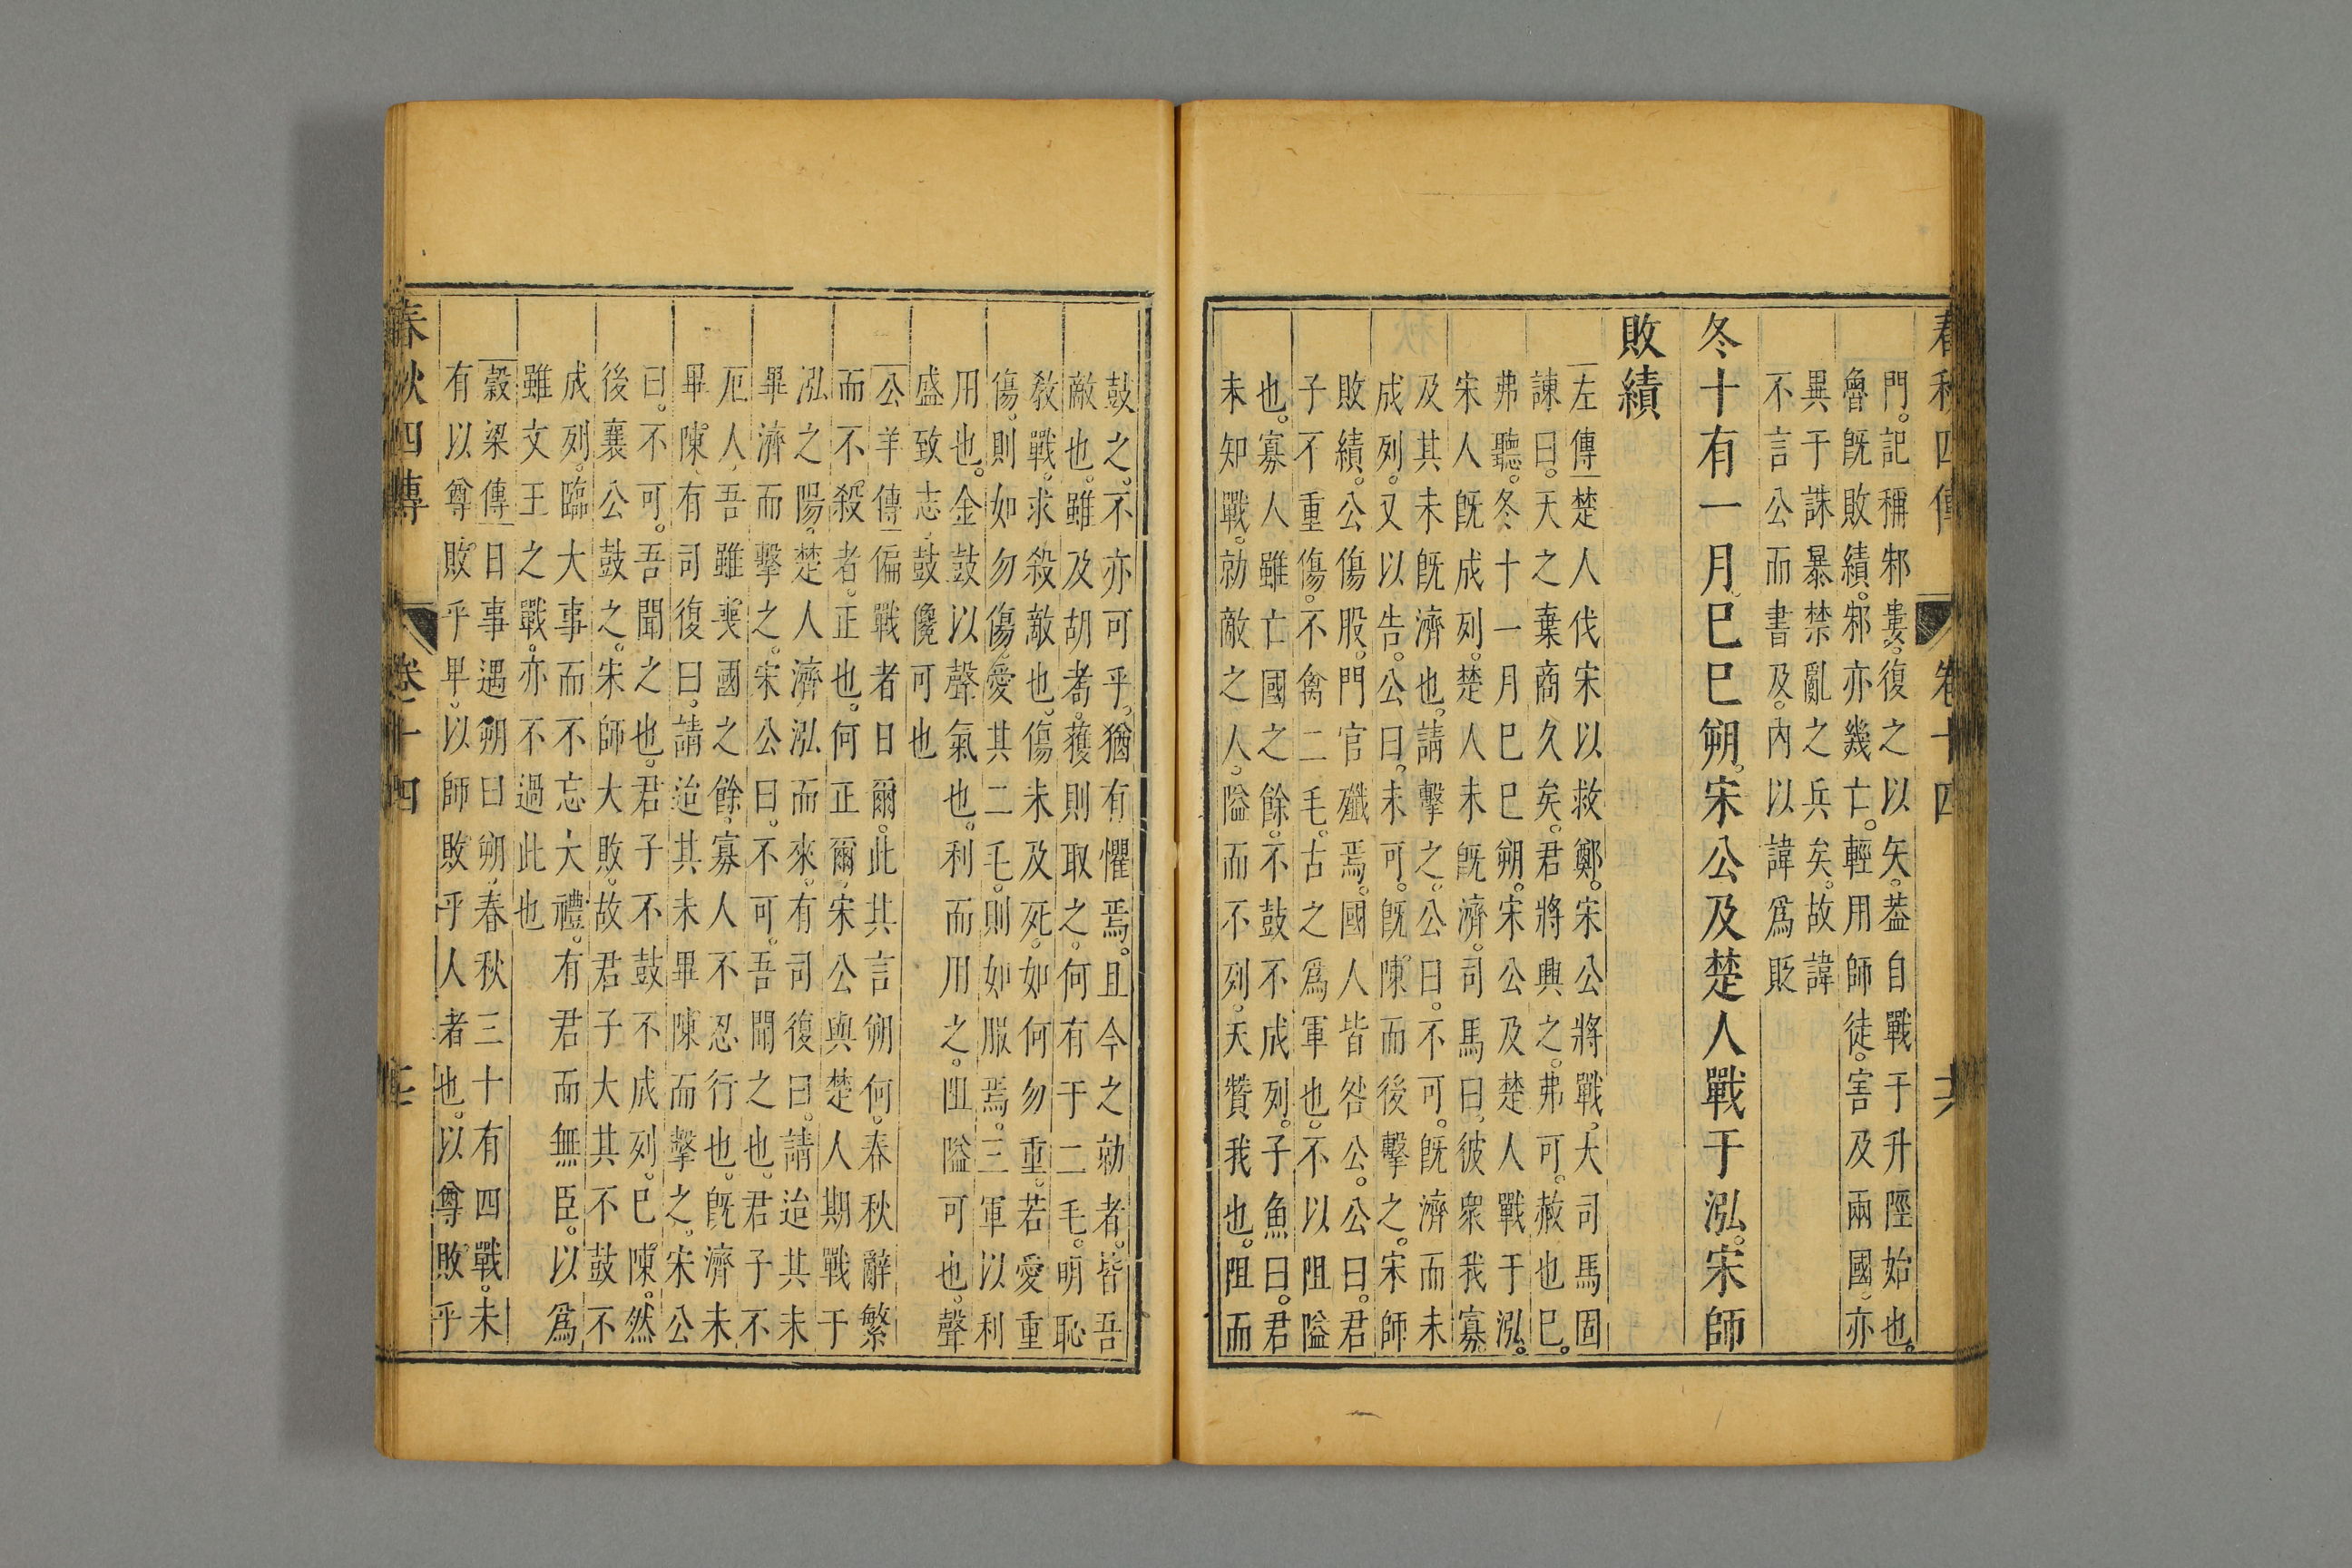 春秋四傳 卷十四
門。記稱邾婁復之以矢。葢自戰于升陘始也。
魯旣敗績。邾亦幾亡。輕用師徒。害及兩國。亦
異于誅暴禁亂之兵矣。故諱
不言公而書及。內以諱爲貶
冬十有一月己巳朔。宋公及楚人戰于泓。宋師
敗績
左傳楚人伐宋以救鄭。宋公將戰。大司馬固
諫曰。天之棄商久矣。君將興之。弗可。赦也已。
弗聽。冬十一月己巳朔。宋公及楚人戰于泓。
宋人旣成列。楚人未旣濟。司馬曰。彼衆我寡。
及其未旣濟也。請擊之。公曰。不可。旣濟而未
成列。又以告。公曰。未可。旣陳而後擊之。宋師
敗績。公傷股。門官殲焉。國人皆咎公。公曰。君
子不重傷。不禽二毛。古之爲軍也。不以阻隘
也。寡人雖亡國之餘。不鼓不成列。子魚曰。君
未知戰。勍敵之人。隘而不列。天贊我也。阻而
鼓之。不亦可乎。猶有懼焉。且今之勍者。皆吾
敵也。雖及胡耉。獲則取之。何有于二毛。明恥
敎戰。求殺敵也。傷未及死。如何勿重。若愛重
傷。則如勿傷。愛其二毛。則如服焉。三軍以利
用也。金鼓以聲氣也。利而用之。阻隘可也。聲
盛致志。鼓儳可也
公羊傳偏戰者日爾。此其言朔何。春秋辭繁
而不殺者。正也。何正爾。宋公與楚人期戰于
泓之陽。楚人濟泓而來。有司復曰。請迨其未
畢濟而擊之。宋公曰。不可。吾聞之也。君子不
厄人。吾雖喪國之餘。寡人不忍行也。旣濟未
畢陳。有司復曰。請迨其未畢陳而擊之。宋公
曰。不可。吾聞之也。君子不鼓不成列。已陳。然
後襄公鼓之。宋師大敗。故君子大其不鼓不
成列。臨大事而不忘大禮。有君而無臣。以爲
雖文王之戰。亦不過此也
穀梁傳日事遇朔曰朔。春秋三十有四戰。未
有以尊敗乎卑。以師敗乎人者也。以尊敗乎
春秋四傳 卷十四